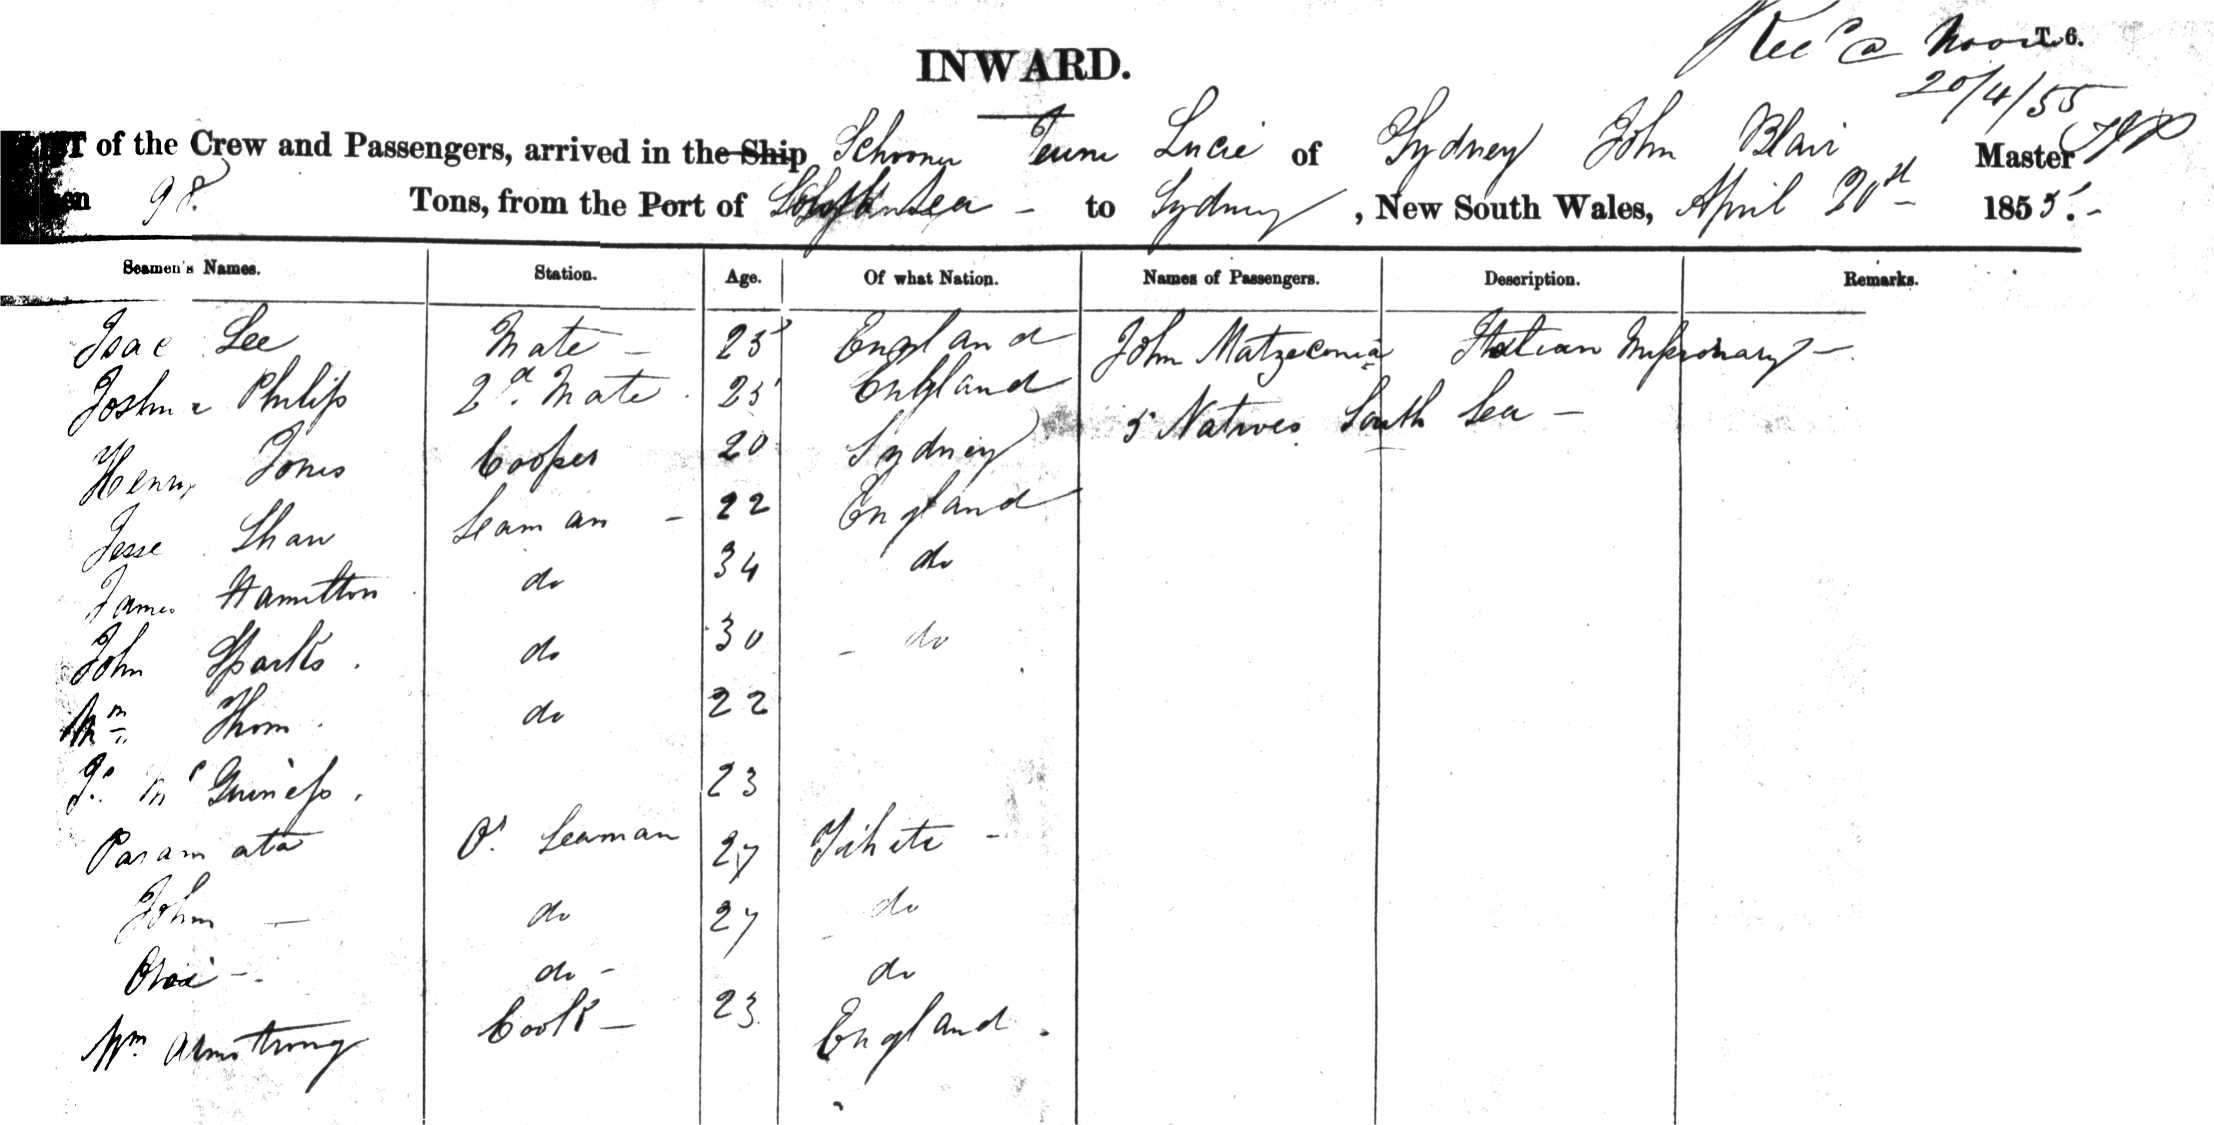 Rec'd @ Noon T. 6.
INWARD.
20/4/55
of the Crew and Passengers, arrived in the Ship Schooner Jeune Lucie of Sydney John Blair Master
98 Tons, from the Port of South Sea - to Sydney, New South Wales, April 20st 1855.-
Seamen's Names. Station. Age. Of what Nation. Names of Passengers. Description. Remarks.
Isac Lee Mate - 25 England John Matzeconia Italian Missionary -
Joshua Philip 2d. Mate. 25 England
5 Natives South Sea -
Henry Jones Cooper 20 Sydney
Jesse Shaw Seaman - 22 England
James Hamilton do 34 do
John Sparks. do 30 - do
Wm Thom. do 22
Js. McGuiness. 23
Paramata O. Seaman 27 Tihete -
John - do 27 do
do - do
Wm. Armstrong Cook - 23 England.